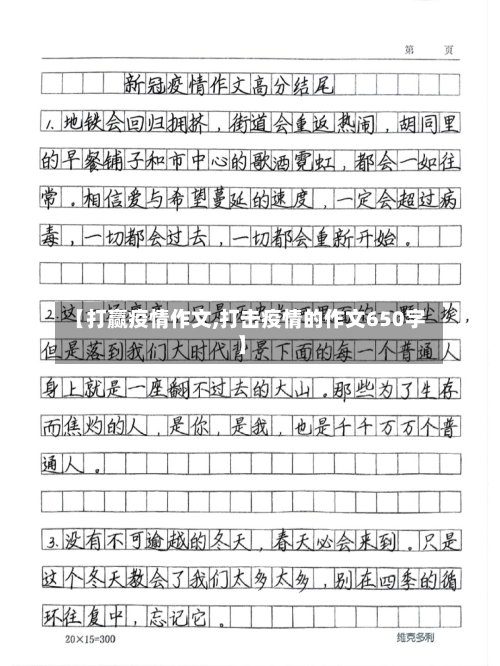 第 页
新冠疫情作文高分结尾
1.地铁会回归拥挤，街道会重返热闹，胡同里
的早餐铺子和市中心的歌洒霓虹，都会一如往
常。相信爱与希望蔓延的速度，一定会超过病
毒，一切都会过去，一切都会重新开始。
2.这 尘埃，
【打赢疫情作文,打击疫情的作文650字
】
但是落到我们大时代背景下面的每一个普通人
身上就是一座翻不过去的大山。那些为了生存
而焦灼的人，是你，是我，也是千千万万个普
通人。
3.没有不可逾越的冬天，春天必会来到。只是
这个冬天教会了我们太多太多，别在四季的循
环往复中，忘记它。
20×15=300 维克多利